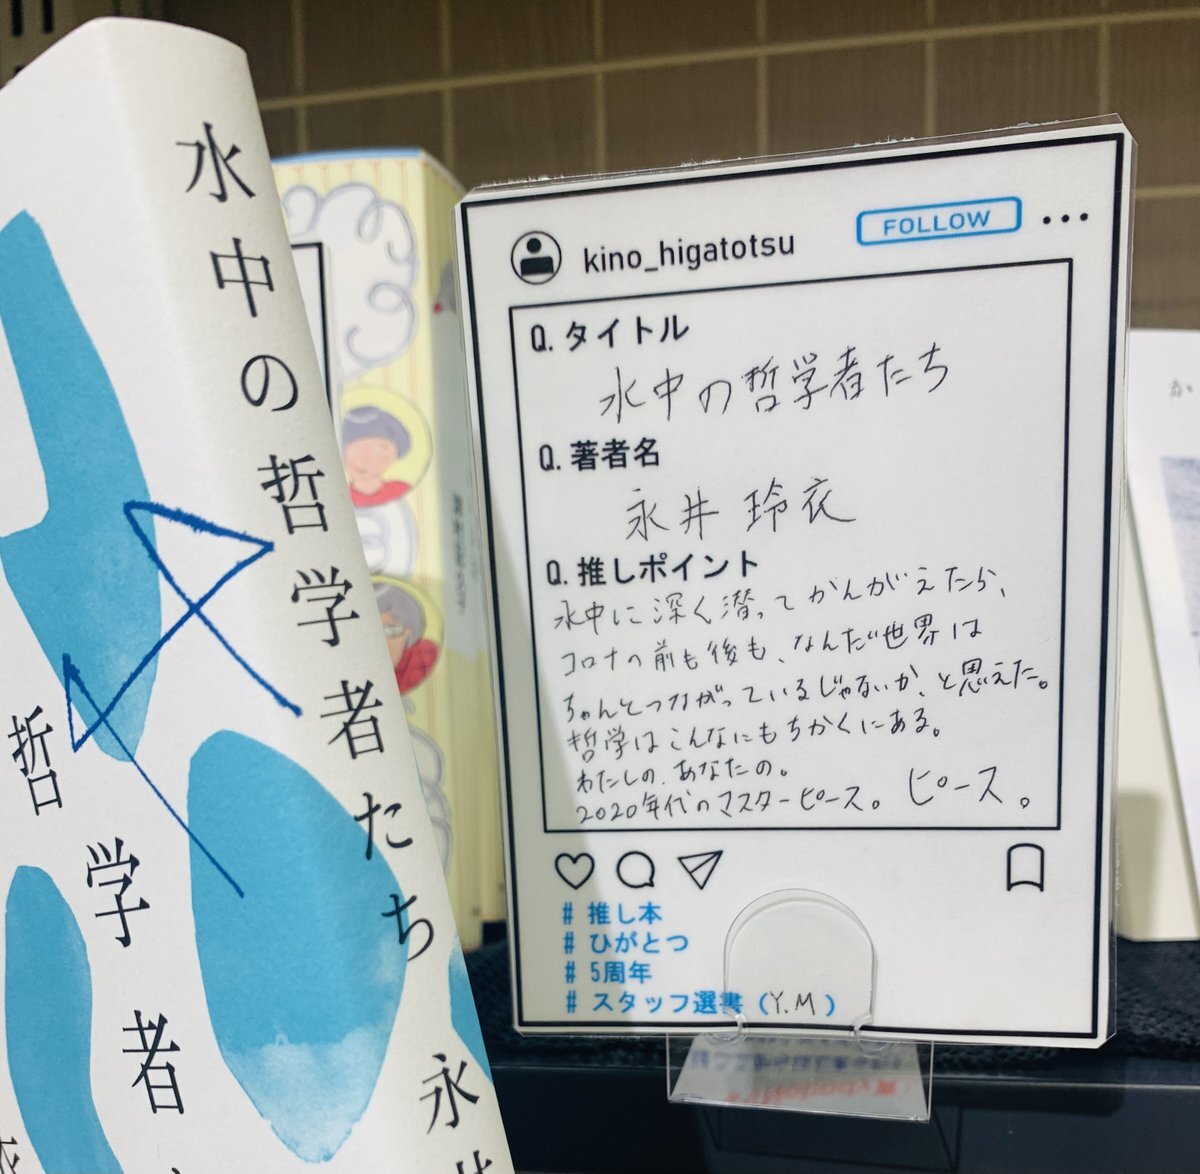 水中の哲学者たち 永井
哲学者
kino_higatotsu
FOLLOW
Q. タイトル
水中の哲学者たち
Q. 著者名
永井 玲衣
Q. 推しポイント
水中に深く潜ってかんがえたら、
コロナの前も後も、なんだ世界は
ちゃんとつながっているじゃないか、と思えた。
哲学はこんなにもちかくにある。
わたしの、あなたの。
2020年代のマスターピース。ピース。
# 推し本
# ひがとつ
# 5周年
# スタッフ選書 (Y.M)